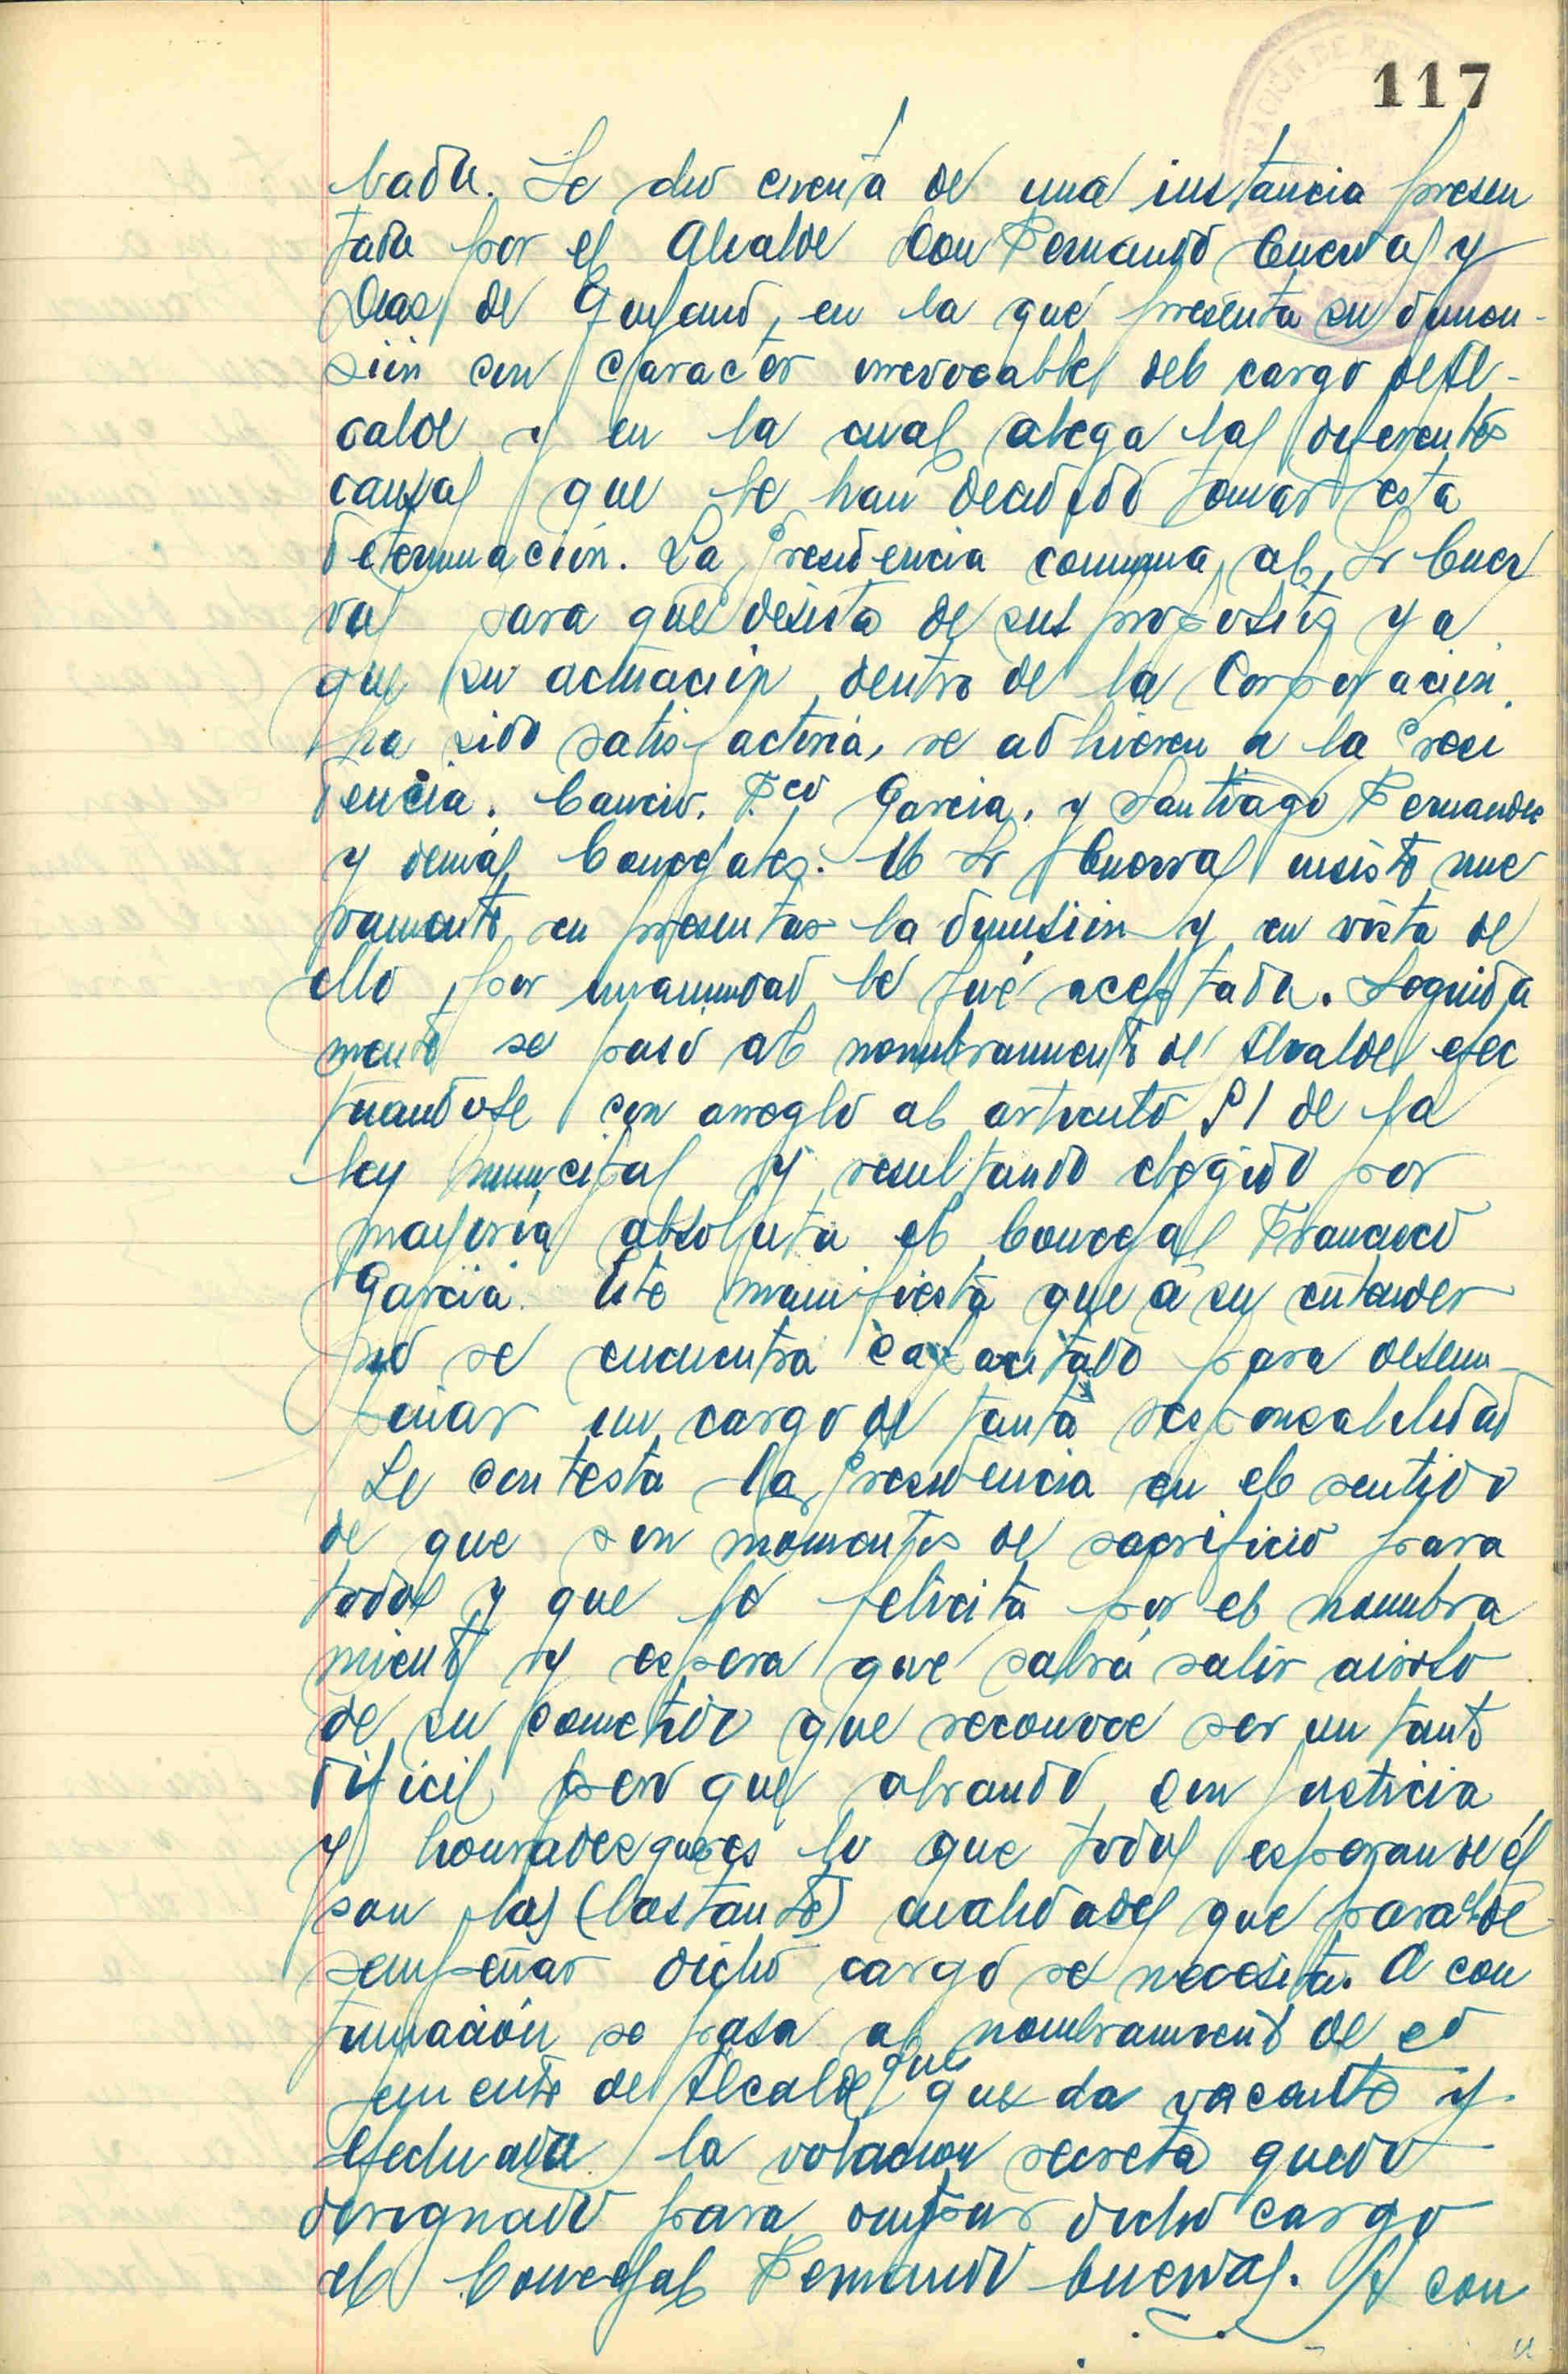 117
bada. Se dio cuenta de una instancia presen
tada por el Alcalde Don Fernando Cuervas y
Dias de , en la que presenta su dimen-
sión con caracter irrevocable del cargo de Al-
calde y en la cual alega las diferentes
causas que le han decidido tomar esta
determinación. La Presidencia connmina al Sr Cuer
vas para que desista de sus propósitos ya
que su actuación dentro de la Corporación
ha sido satisfactoria, se adhieren a la Presi
dencia. Cancio. Fco Garcia. y Santiago Fernandez
y demás Concejales. El Sr Cuervas insiste nue
vamente en presentar la dimisión y en vista de
ello, por unanimidad le fué aceptada. Seguida
mente se pasó al nombramiento de Alcalde efec
tuandose con arreglo al articulo 81 de la
ley municipal y resultando elegido por
mayoria absoluta el Concejal Francisco
Garcia. Este manifiesta que a su entender
no se encuentra capacitado para desem-
peñar un cargo de tanta responsabilidad
Le contesta la Presidencia en el sentido
de que son momentos de sacrificio para
todos y que le felicita por el nombra
miento y espera que sabrá salir airoso
de su cometido que reconoce ser un tanto
dificil pero que obrando con justicia
y honradez que es lo que todos esperan de él
son las (bastante) cualidades que para el de
sempeñar dicho cargo se necesita. A con
tinuación se pasa al nombramiento de
de Alcalde que queda vacante y
efectuada la votacion secreta quedo
designado para ocupar dicho cargo
el Concejal Fernando Cuervas. A con